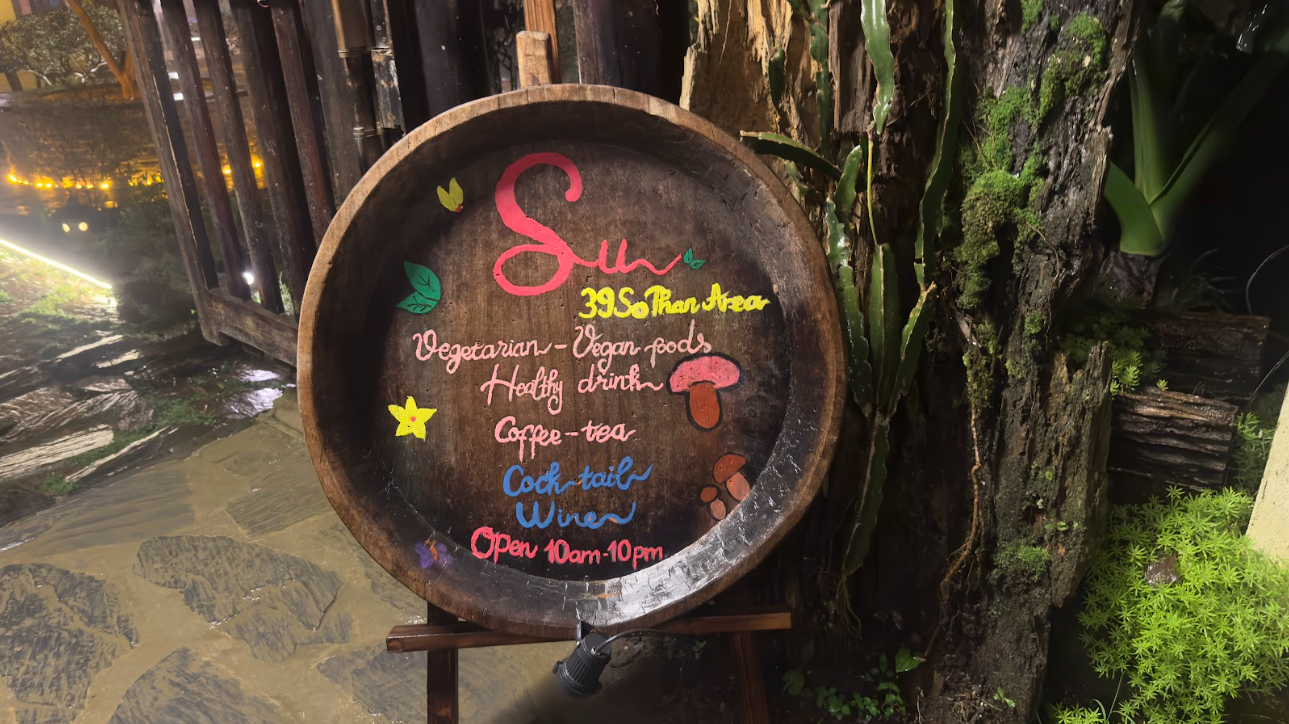 Su
39 So Than Area
Vegetarian - Vegan foods
Healthy drink
Coffee - tea
Cock-tail
Wine
Open 10am-10pm